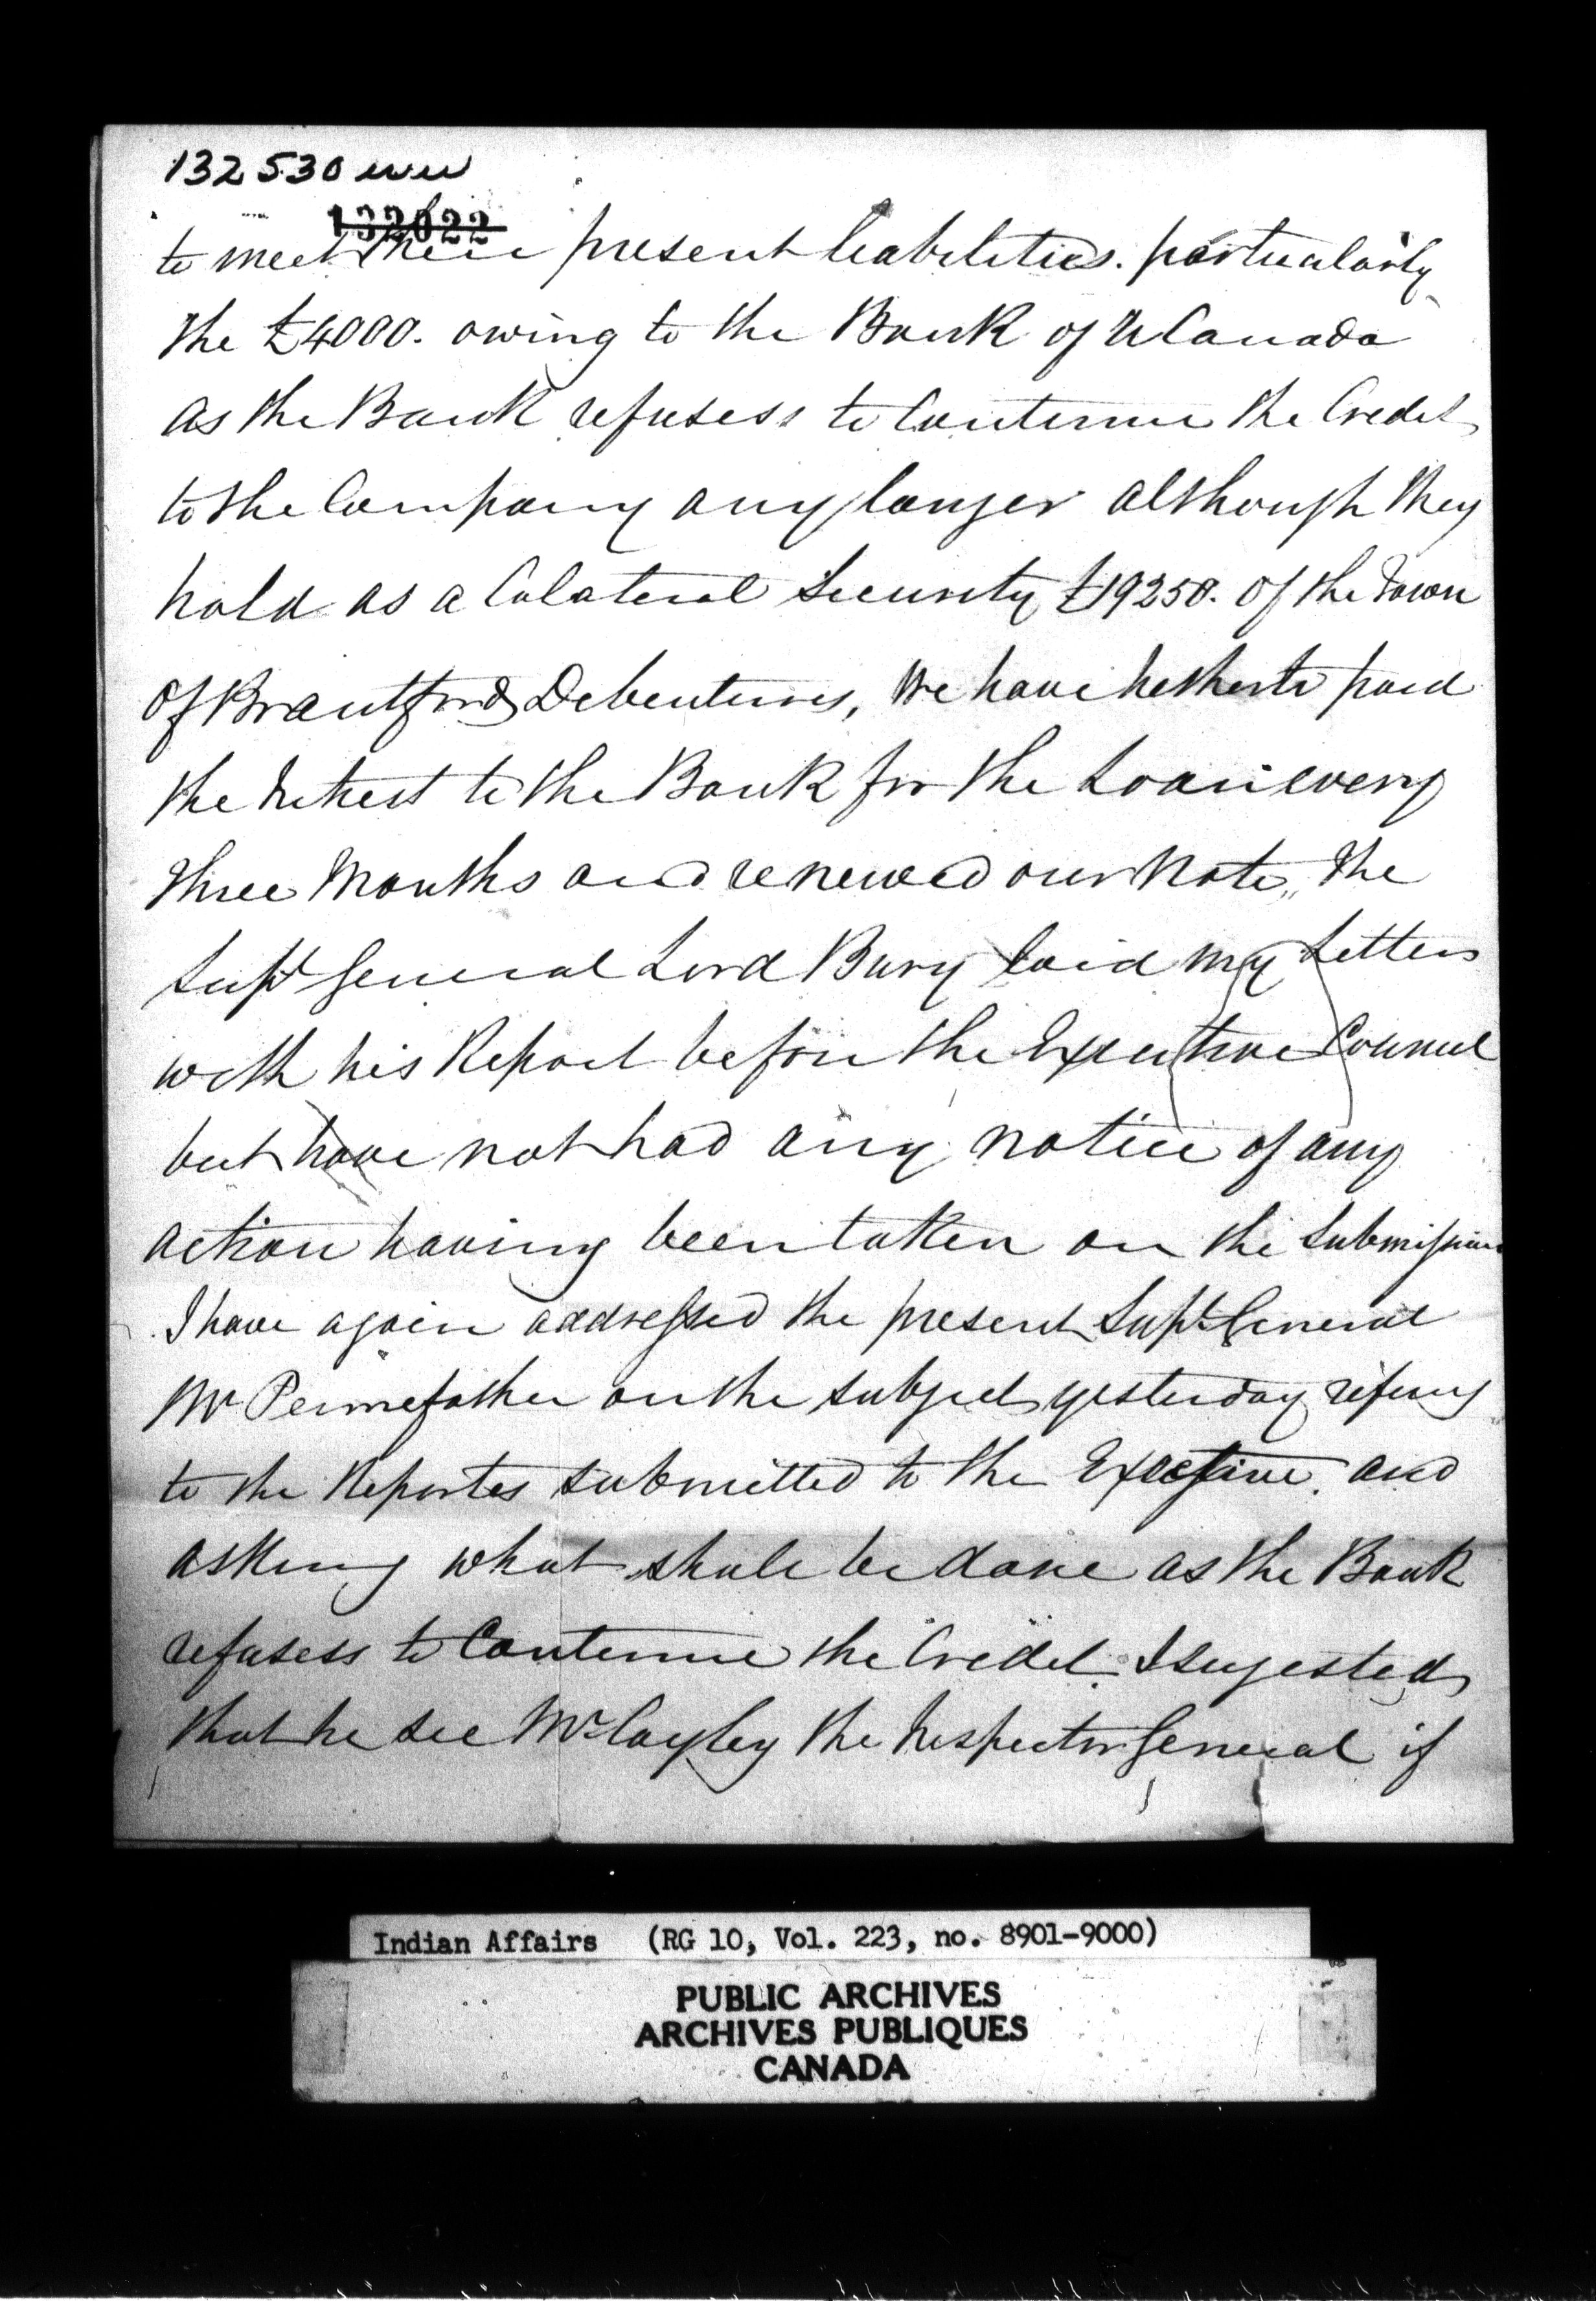 132530 www
132022
to meet their present liabilities. partucularly
the £4000. owing to the Bank of U Canada
as the Bank refusess to Contenue the Credit
to the Company any longer although they
hold as a Colateral Security £19250. of the Town
of Brantford Debentures, We have hetherto paid
the Intrest to the Bank for the Loan every
three Months and renewed our Note, The
Supt General Lord Bury laid my Letters
with his Report before the Executive Council
but have not had any notice of any
action having been taken on the Submission
I have again addressed the present Supt General
Mr Pennefather on the subject yesterday refering
to the Reportes submitted to the Exective. and
asking what shall be done as the Bank
refusess to Contenue the Credit. I sugested
that he see Mr Cayley the Inspector General if
Indian Affairs (RG 10, Vol. 223, no. 8901-9000)
PUBLIC ARCHIVES
ARCHIVES PUBLIQUES
CANADA